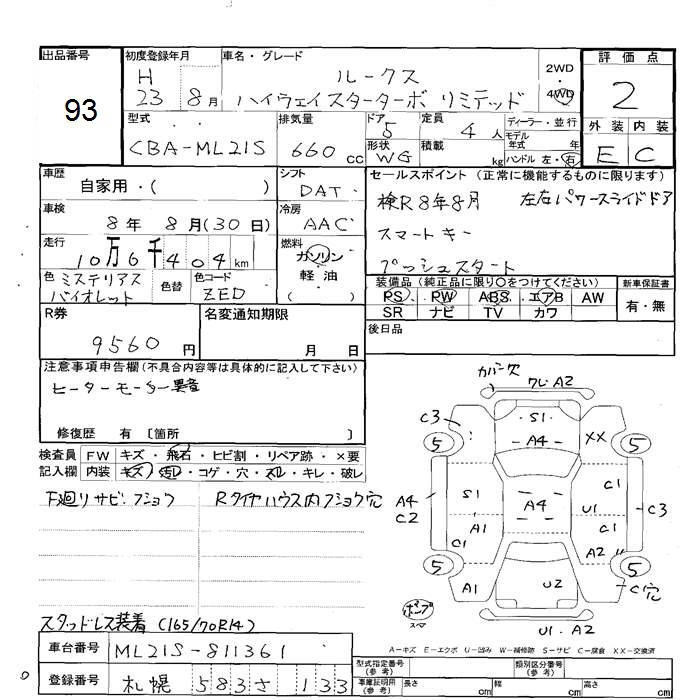 出品番号
93
初度登録年月
H
23 8月
車名・グレード
ルークス
ハイウェイスターターボ リミテッド
2WD
・
4WD
評価点
2
外装 内装
E C
型式
CBA-ML21S
排気量
660 cc
ドア
5
定員
4 人
形状
WG
積載
kg
ディーラー・並行
モデル年式 年
ハンドル 左・右
車歴
自家用・( )
シフト
DAT
車検
8年 8月(30日)
冷房
AAC
走行
10万6千404km
燃料
ガソリン
軽油
( )
色 ミステリアスバイオレット
色替
色コード
ZED
セールスポイント(正常に機能するものに限ります)
検R8年8月 左右パワースライドドア
スマートキー
プッシュスタート
装備品(純正品に限り○をつけてください)
PS PW ABS エアB AW
SR ナビ TV カワ
新車保証書
有・無
後日品
R券
9560 円
名変通知期限
月 日
注意事項申告欄(不具合内容等は具体的に記入して下さい)
ヒーターモーター異音
修復歴 有 〔箇所 〕
検査員記入欄
FW キズ・飛石・ヒビ割・リペア跡・×要
内装 キズ・汚レ・コゲ・穴・スレ・キレ・破レ
下廻りサビ・フショク
Rタイヤハウス内フショク穴
スタッドレス装着(165/70R14)
カバー欠
ワレA2
C3
S1
A4
XX
5
5
A4
C2
S1
A4
C1
U1
C1
C3
A1
C1
A2
U
5
5
A1
U2
C穴
ポンプ
スマ
U1.A2
A−キズ E−エクボ U−凹み W−補修跡 S−サビ C−腐食 XX−交換済
車台番号
ML21S-811361
登録番号
札幌 583さ 133
型式指定番号(参考)
類別区分番号(参考)
車庫証明用(参考)
長さ cm
幅 cm
高さ cm